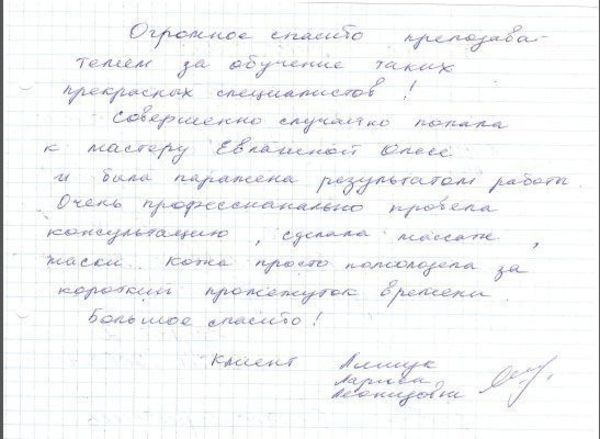 Огромное спасибо преподава-
телям за обучение таких
прекрасных специалистов!
Совершенно случайно попала
к мастеру Евлашкой Олесе
и была паражена результатом работы.
Очень профессионально провела
консультацию, сделала массаж,
маски. Кожа просто помолодела за
короткий промежуток времени.
Большое спасибо!
Клиент
Лариса
Леонидовна